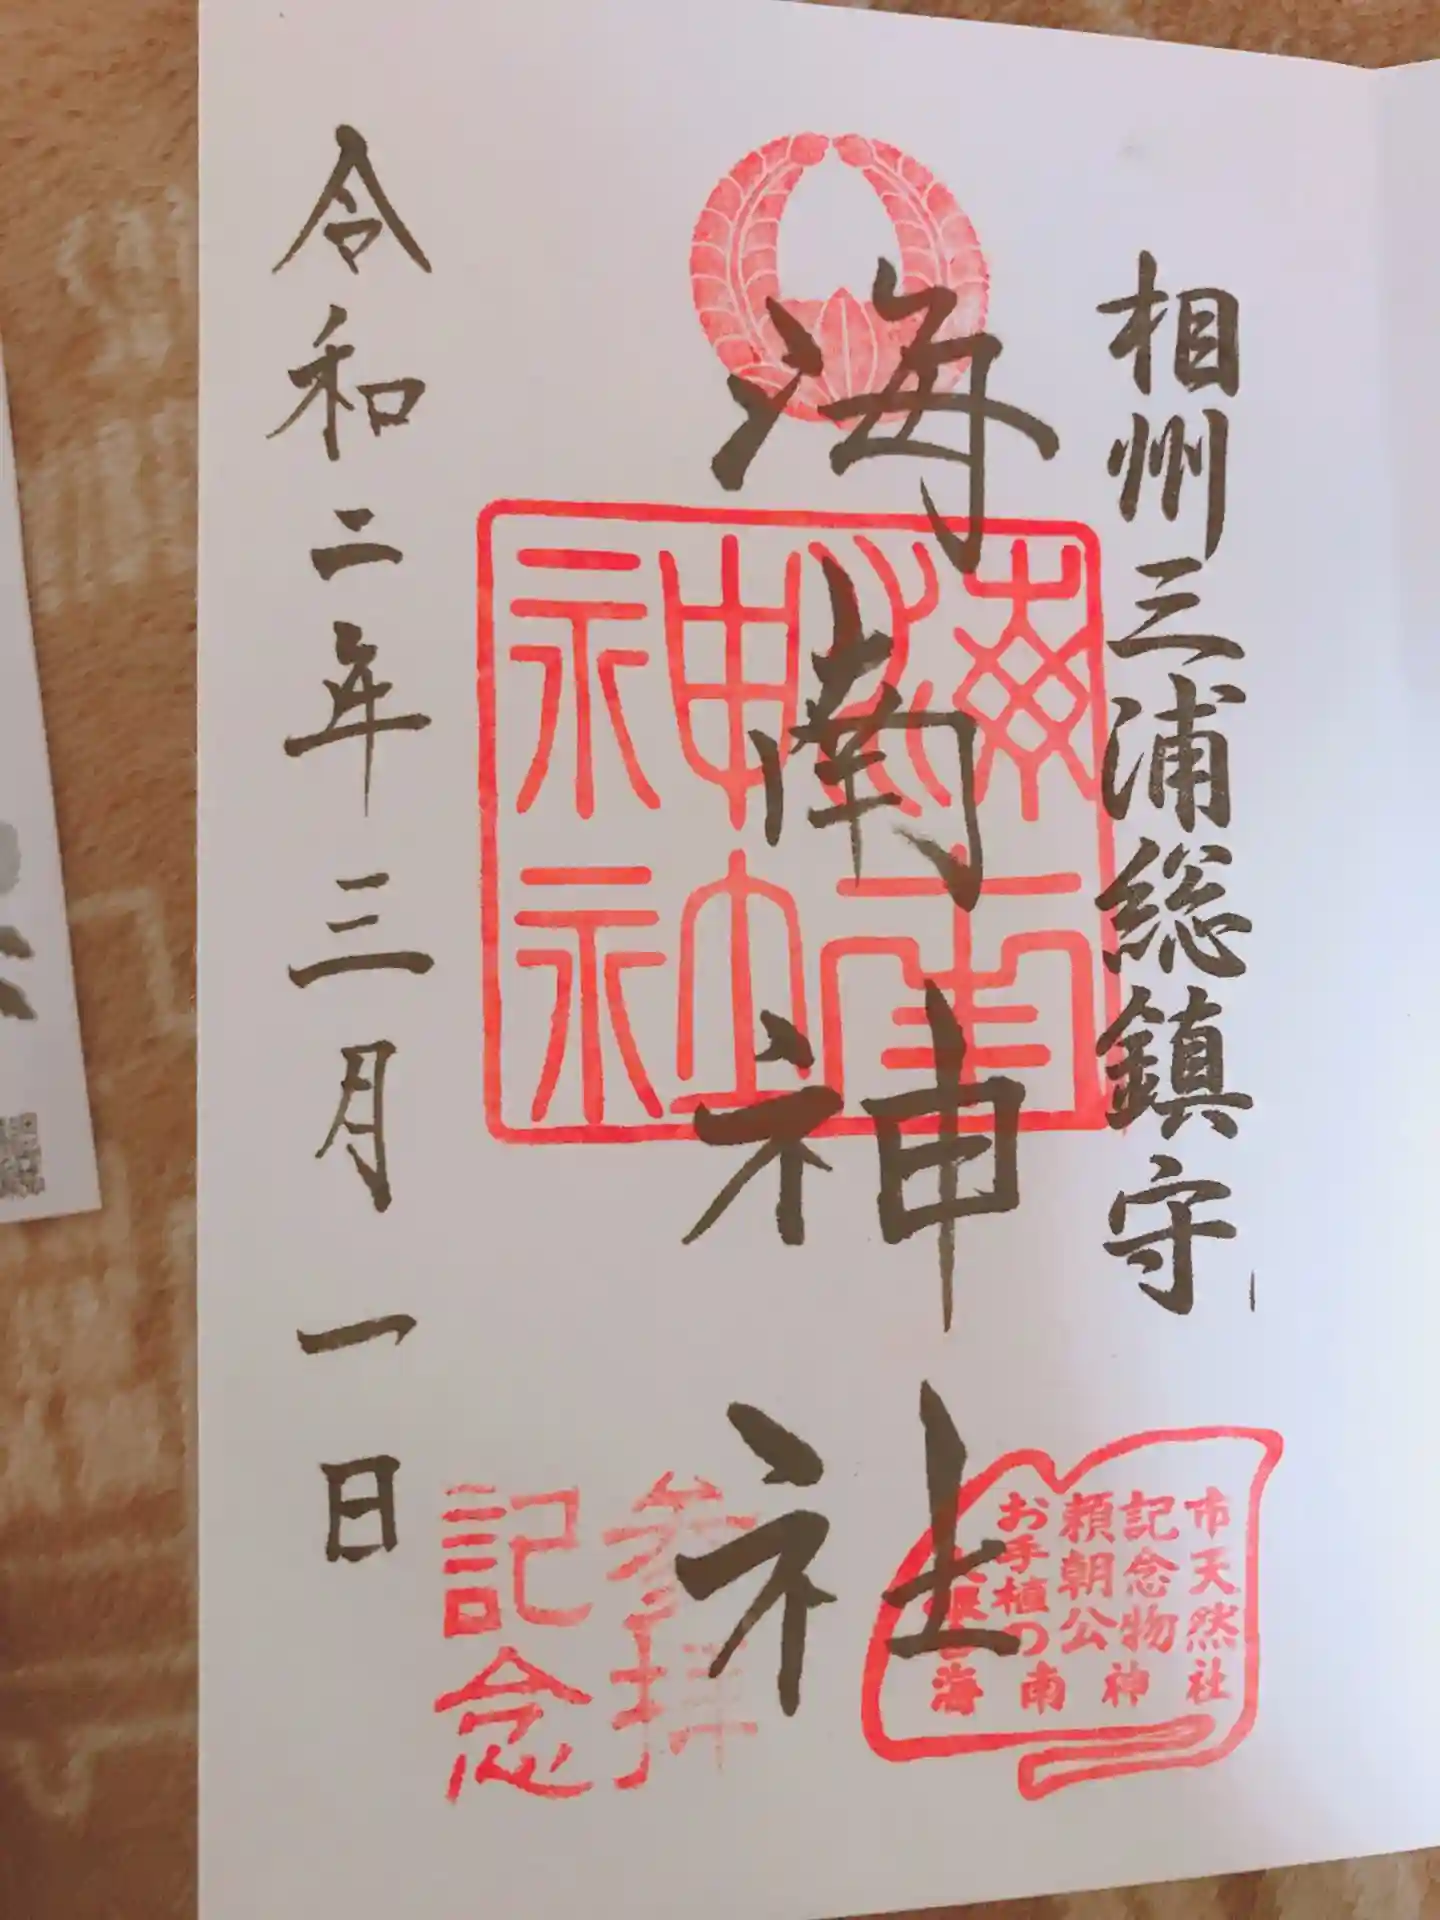 相州三浦総鎮守
海南神社
海南神社
令和二年三月一日
参拝
記念
市天然
記念物
頼朝公
お手植の
海南神社